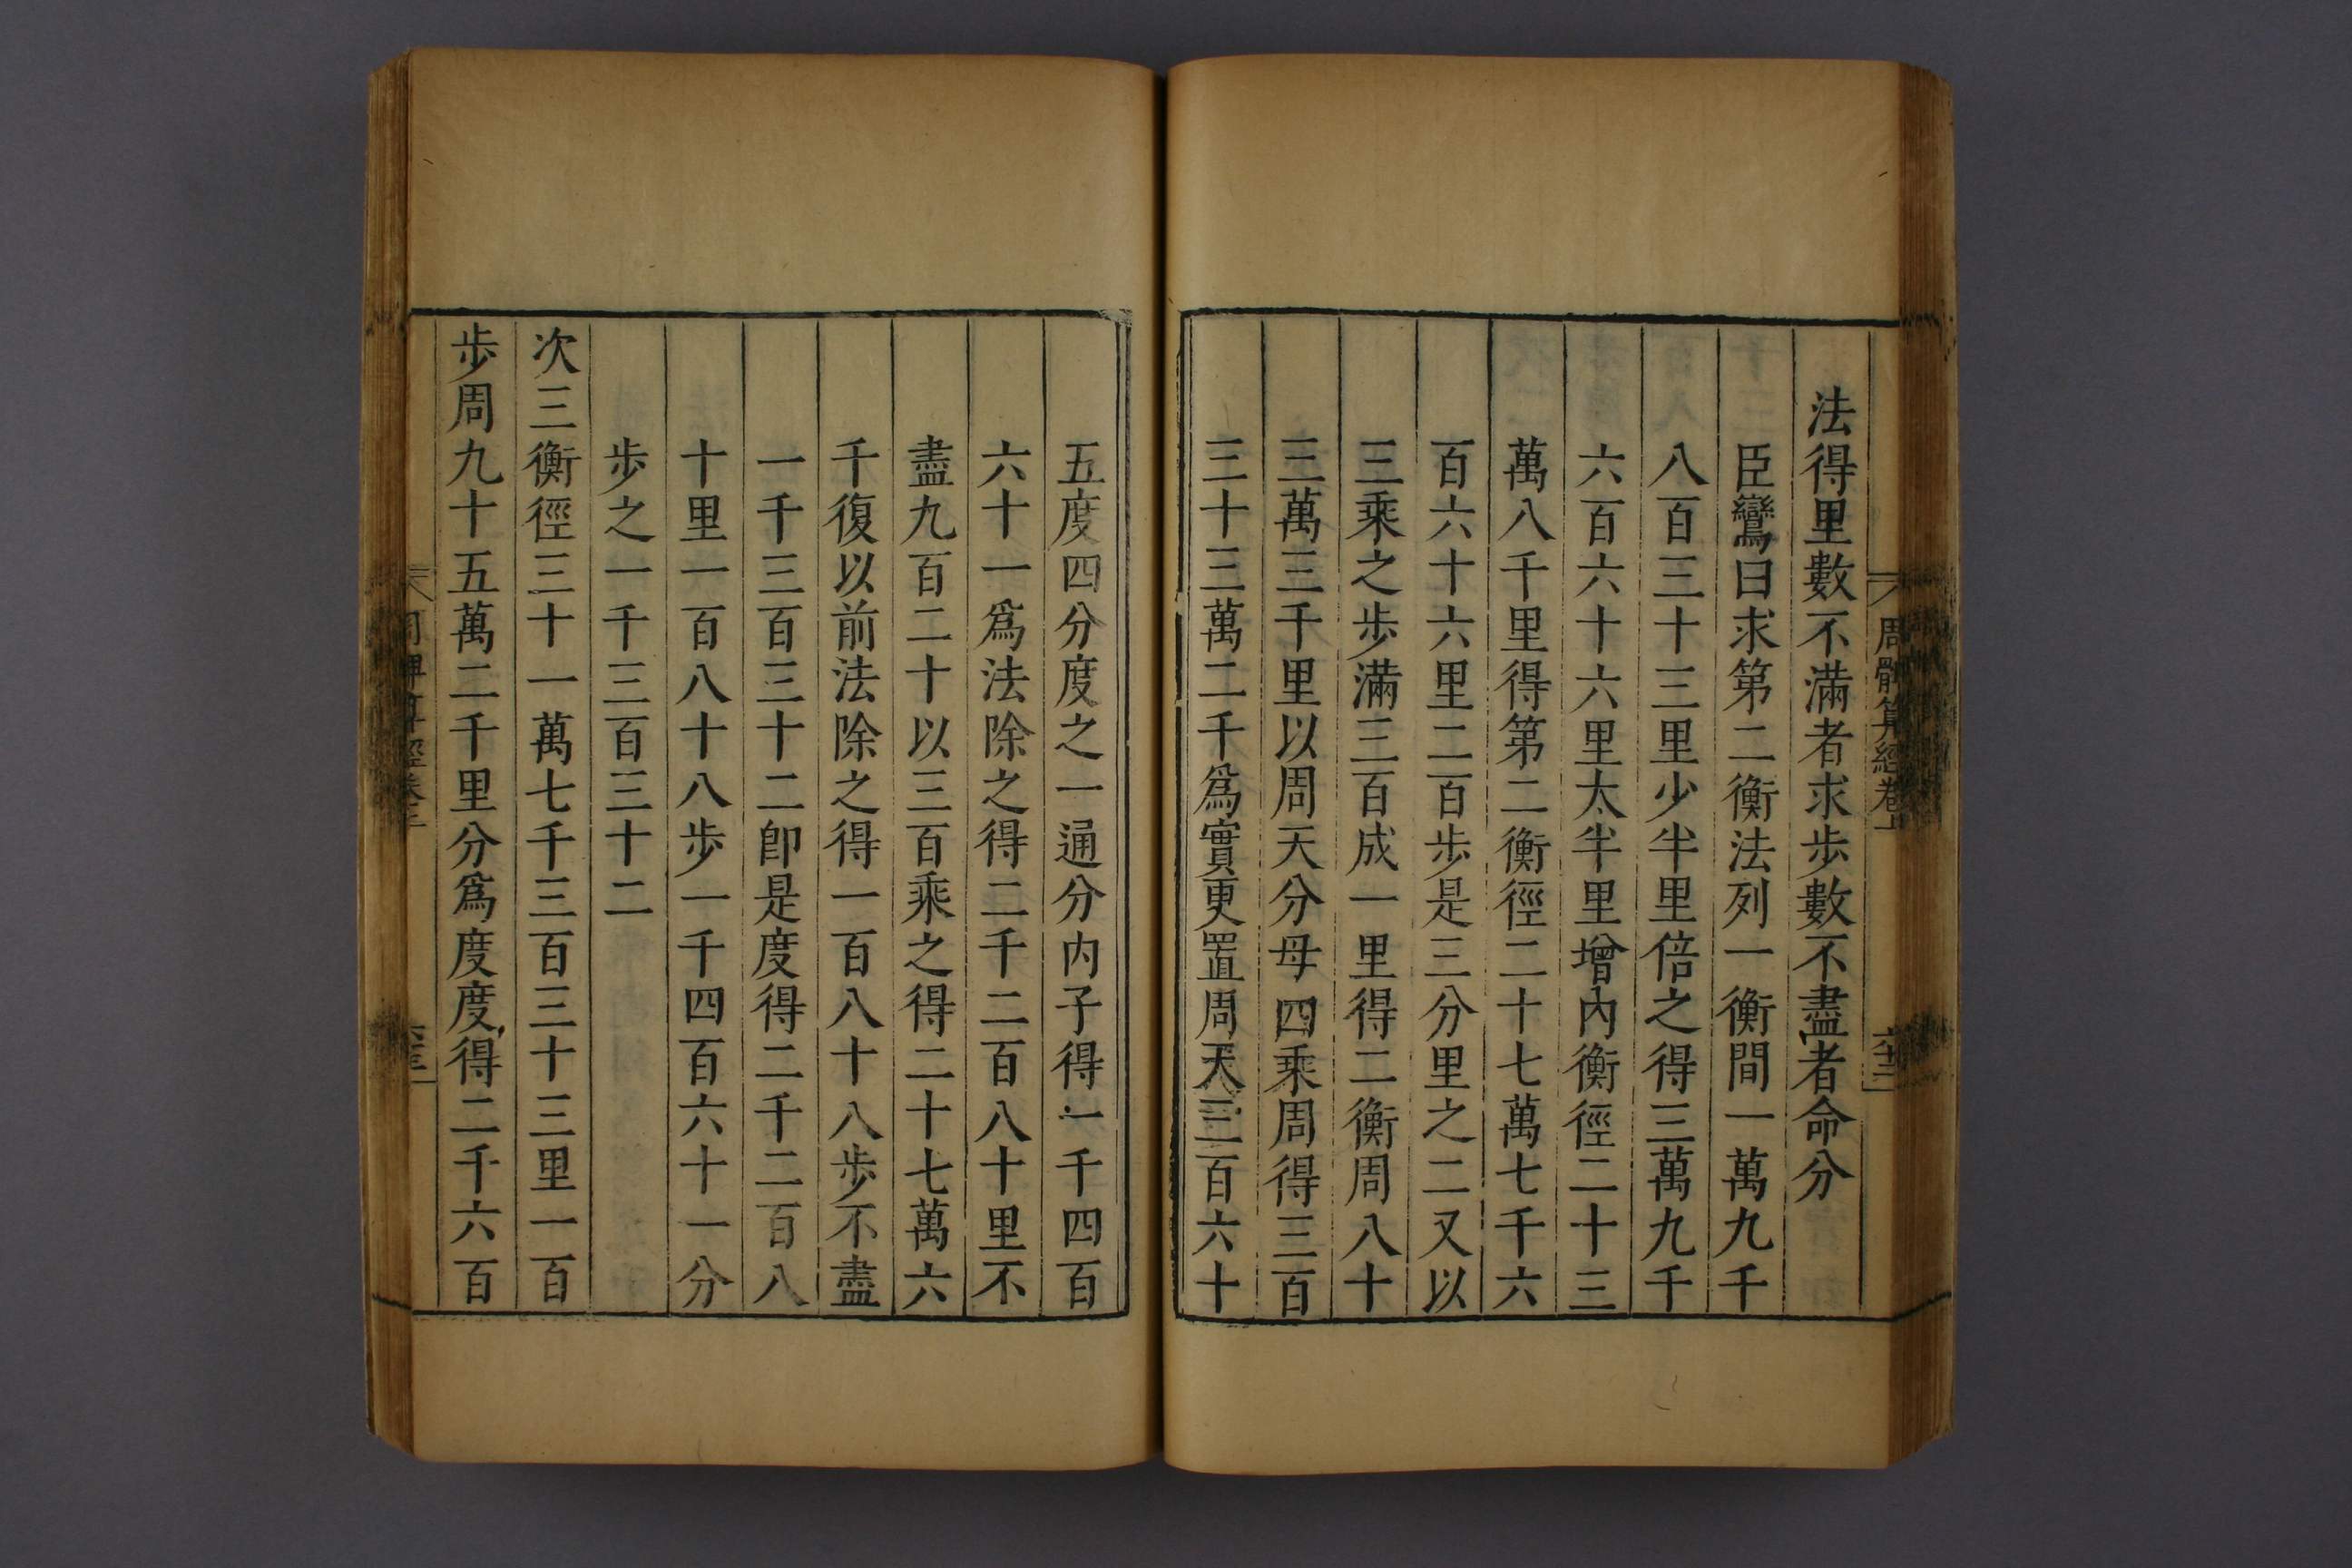 周髀算經卷上
法得里數不滿者求步數不盡者命分
臣鸞曰求第二衡法列一衡間一萬九千
八百三十三里少半里倍之得三萬九千
六百六十六里太半里增內衡徑二十三
萬八千里得第二衡徑二十七萬七千六
百六十六里二百步是三分里之二又以
三乘之步滿三百成一里得二衡周八十
三萬三千里以周天分母四乘周得三百
三十三萬二千爲實更置周天三百六十
五度四分度之一通分內子得一千四百
六十一爲法除之得二千二百八十里不
盡九百二十以三百乘之得二十七萬六
千復以前法除之得一百八十八步不盡
一千三百三十二卽是度得二千二百八
十里一百八十八步一千四百六十一分
步之一千三百三十二
次三衡徑三十一萬七千三百三十三里一百
步周九十五萬二千里分爲度度得二千六百